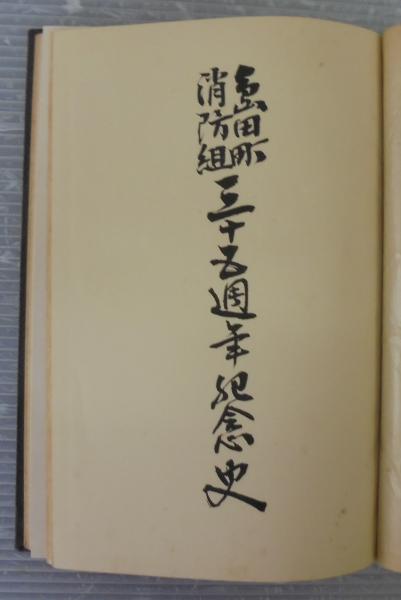 島田町
消防組
三十五週年紀念史